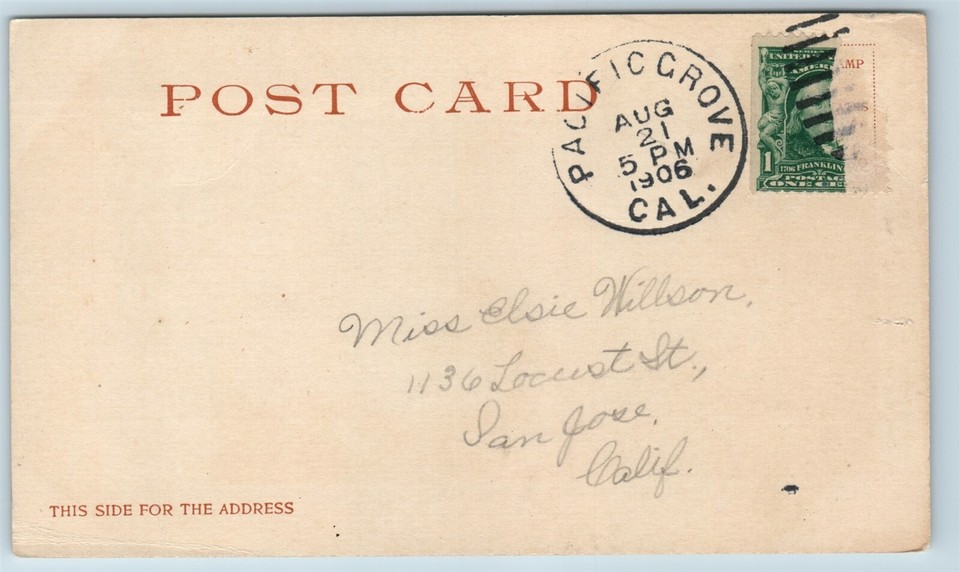 POST CARD
PACIFIC GROVE
AUG
21
5 PM
1906
CAL.
SERIES
UNITED
AMERI
1
1706 FRANKLIN
POSTAG
ONE CE
AMP
Miss Elsie Willson,
1136 Locust St.,
San Jose,
Calif.
THIS SIDE FOR THE ADDRESS